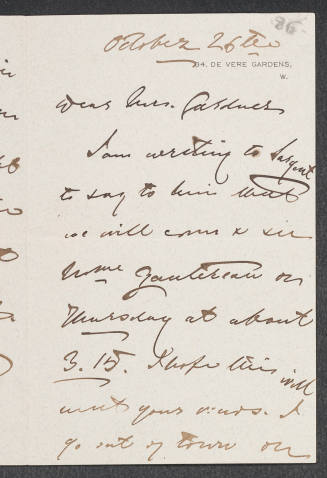 86
October 26th
34, DE VERE GARDENS,
W.
Dear Mrs. Gardner
I am writing to Sargent
to say to him that
we will come & see
Mme Gautereau on
Thursday at about
3.15. I hope this will
meet your views. I
go out of town on